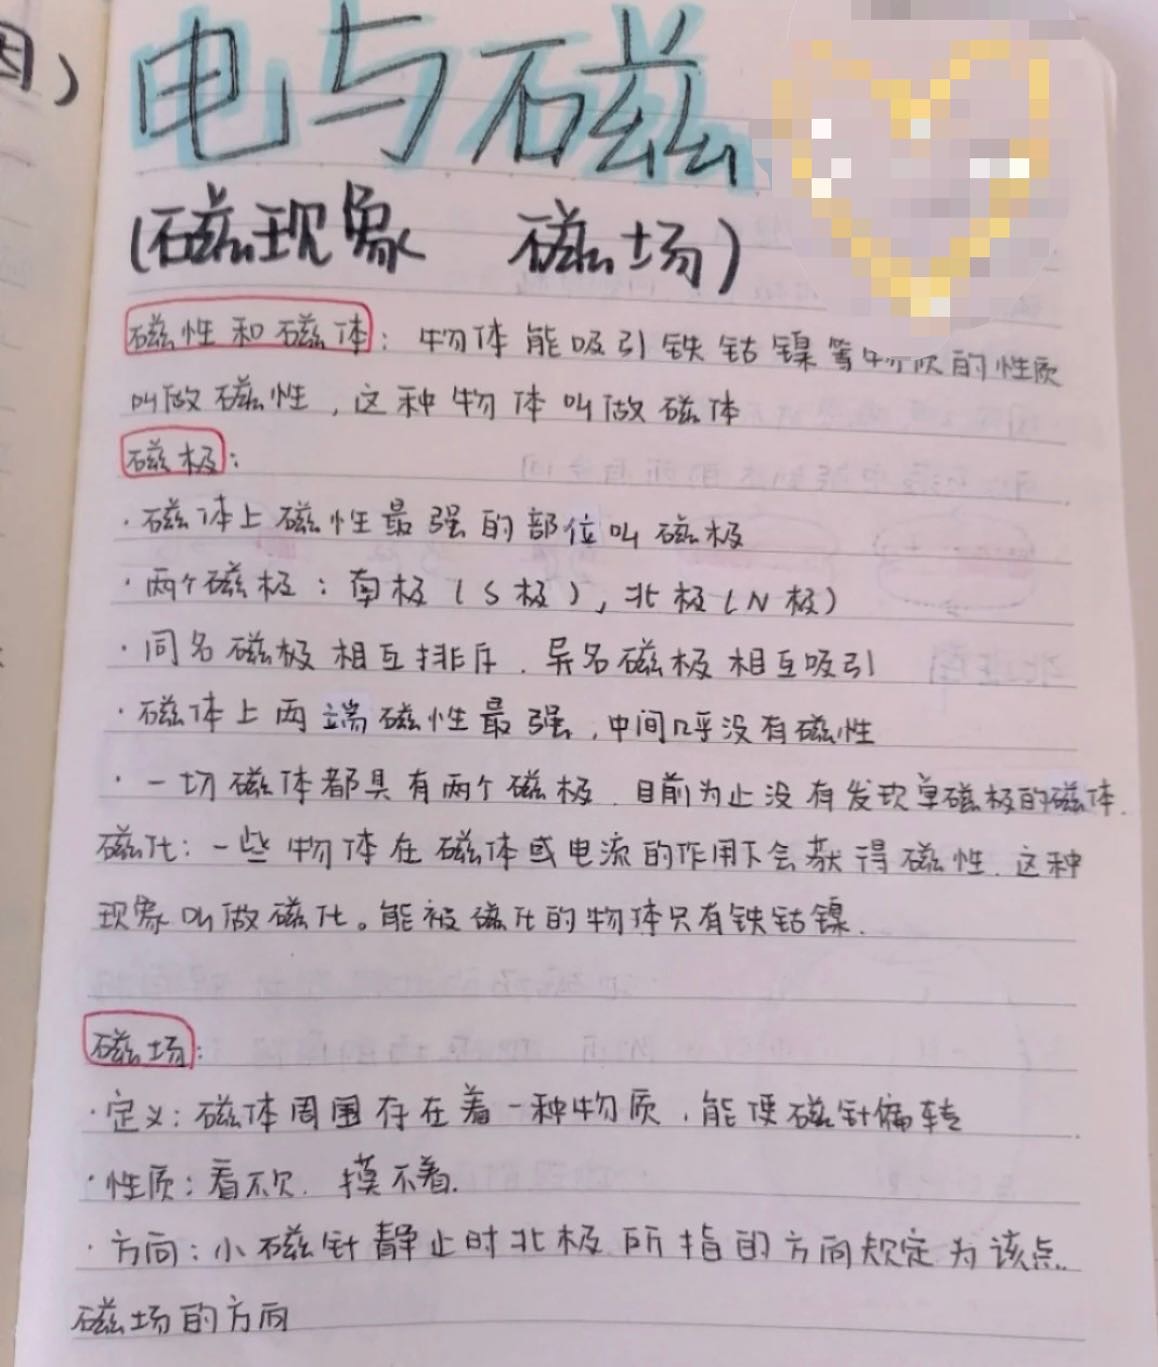 因)
电与磁
(磁现象 磁场)
磁性和磁体: 物体能吸引铁钴镍等物质的性质
叫做磁性,这种物体叫做磁体
磁极:
·磁体上磁性最强的部位叫磁极
·两个磁极:南极(S极),北极(N极)
·同名磁极相互排斥.异名磁极相互吸引
·磁体上两端磁性最强,中间几乎没有磁性
·一切磁体都具有两个磁极.目前为止没有发现单磁极的磁体.
磁化:一些物体在磁体或电流的作用下会获得磁性.这种
现象叫做磁化。能被磁化的物体只有铁钴镍.
磁场:
·定义:磁体周围存在着一种物质,能使磁针偏转
·性质:看不见.摸不着.
·方向:小磁针静止时北极所指的方向规定为该点
磁场的方向